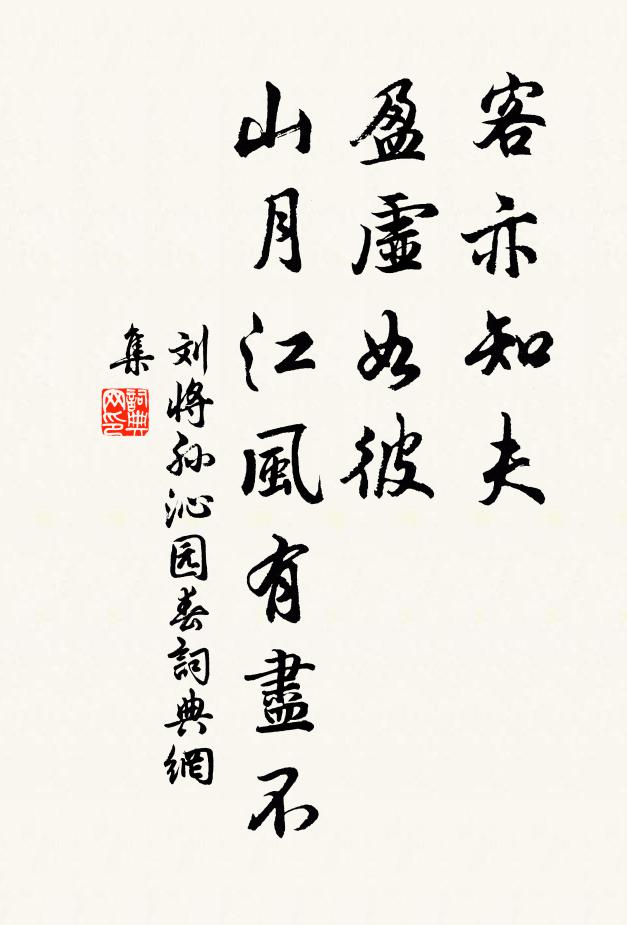 客亦知夫
盈虛如彼
山月江風有盡不
刘將孙沁园春詞典網
集
詞典
网印